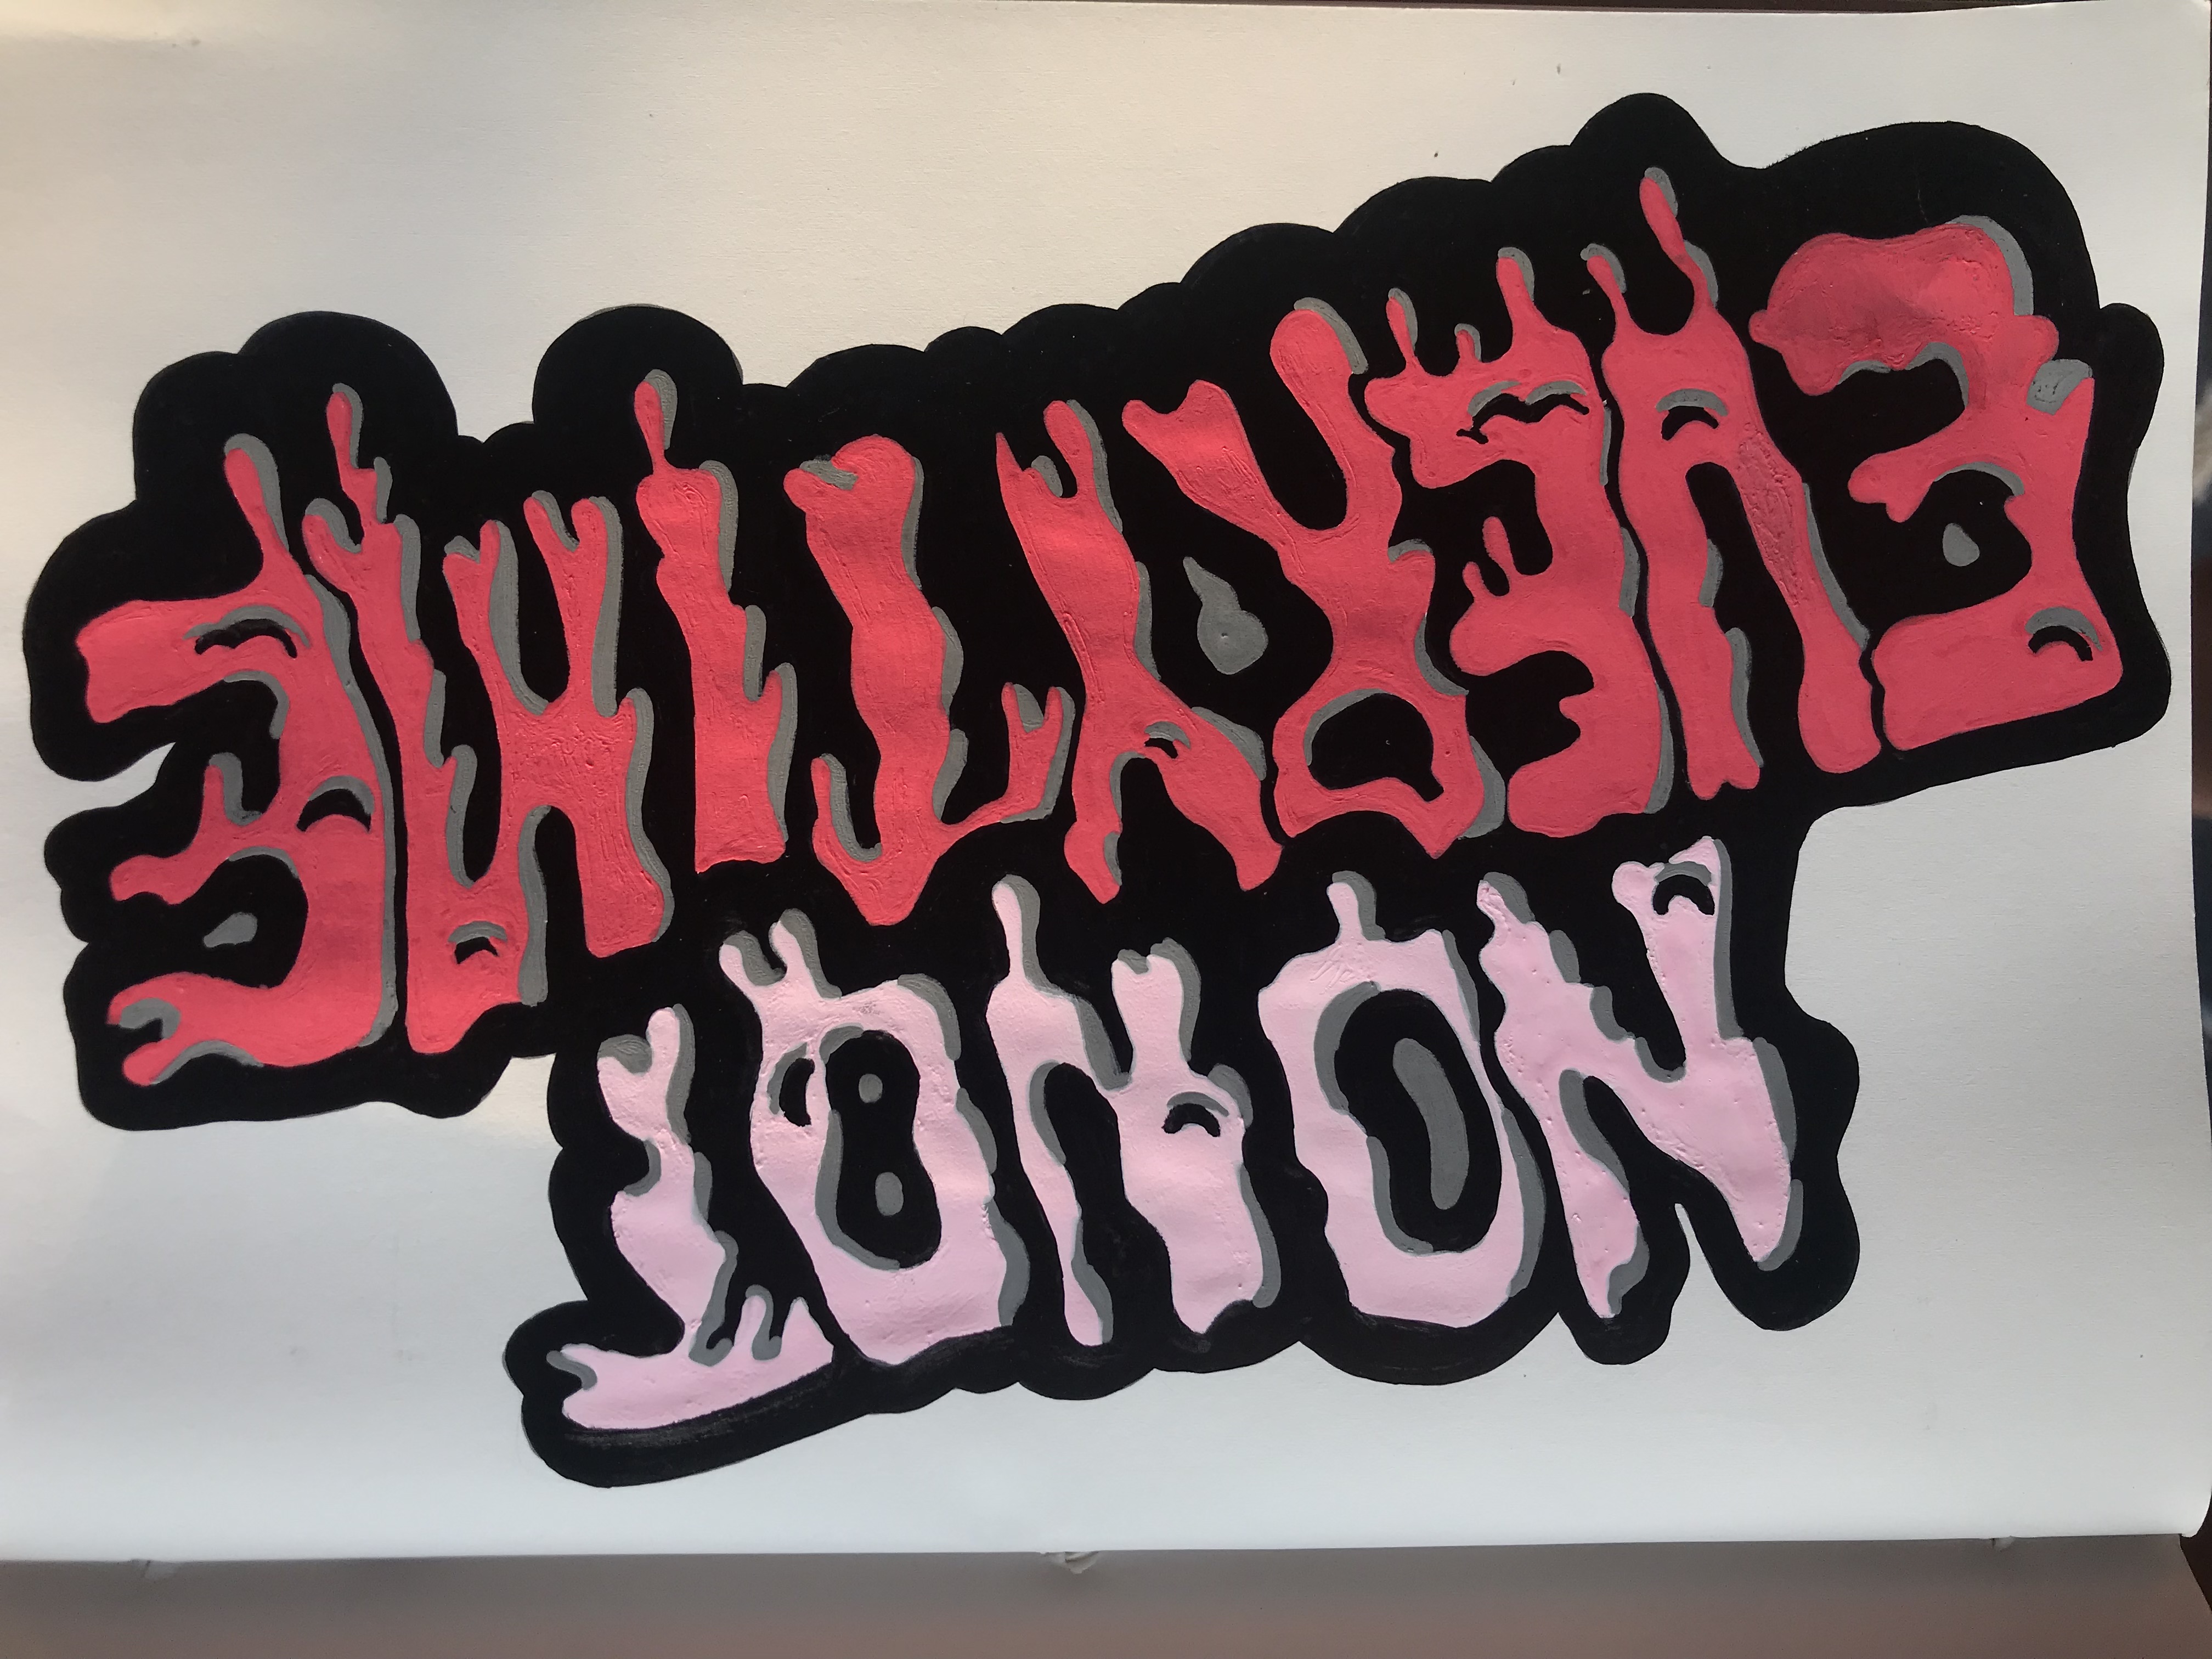 NO NOT
EVERYTIME